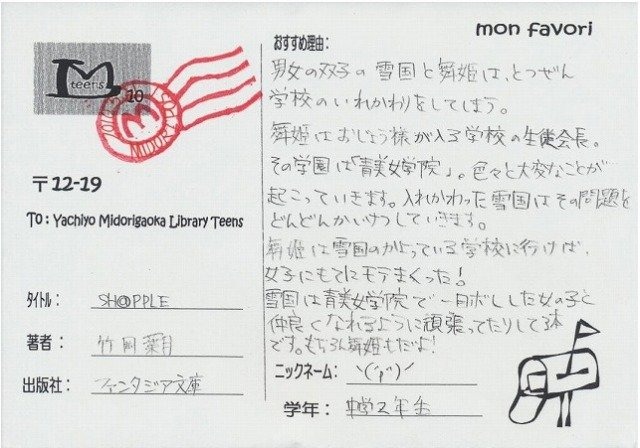 mon favori
M
teens
10
〒12-19
To: Yachiyo Midorigaoka Library Teens
タイトル: SH@PPLE
著者: 竹岡葉月
出版社: ファンタジア文庫
おすすめ理由:
男女の双子の雪国と舞姫は、とつぜん
学校のいれかわりをしてしまう。
舞姫はおじょう様が入る学校の生徒会長。
その学園は「青美女学院」。色々と大変なことが
起こっていきます。入れかわった雪国はその問題を
どんどんかいけつしていきます。
舞姫は雪国のかよっている学校に行けば、
女子にもてにモテまくった!
雪国は青美女学院で一目ボレした女の子と
仲良くなれるように頑張ってたりしてる本
です。もちろん舞姫もだよ!
ニックネーム:
学年: 中学2年生